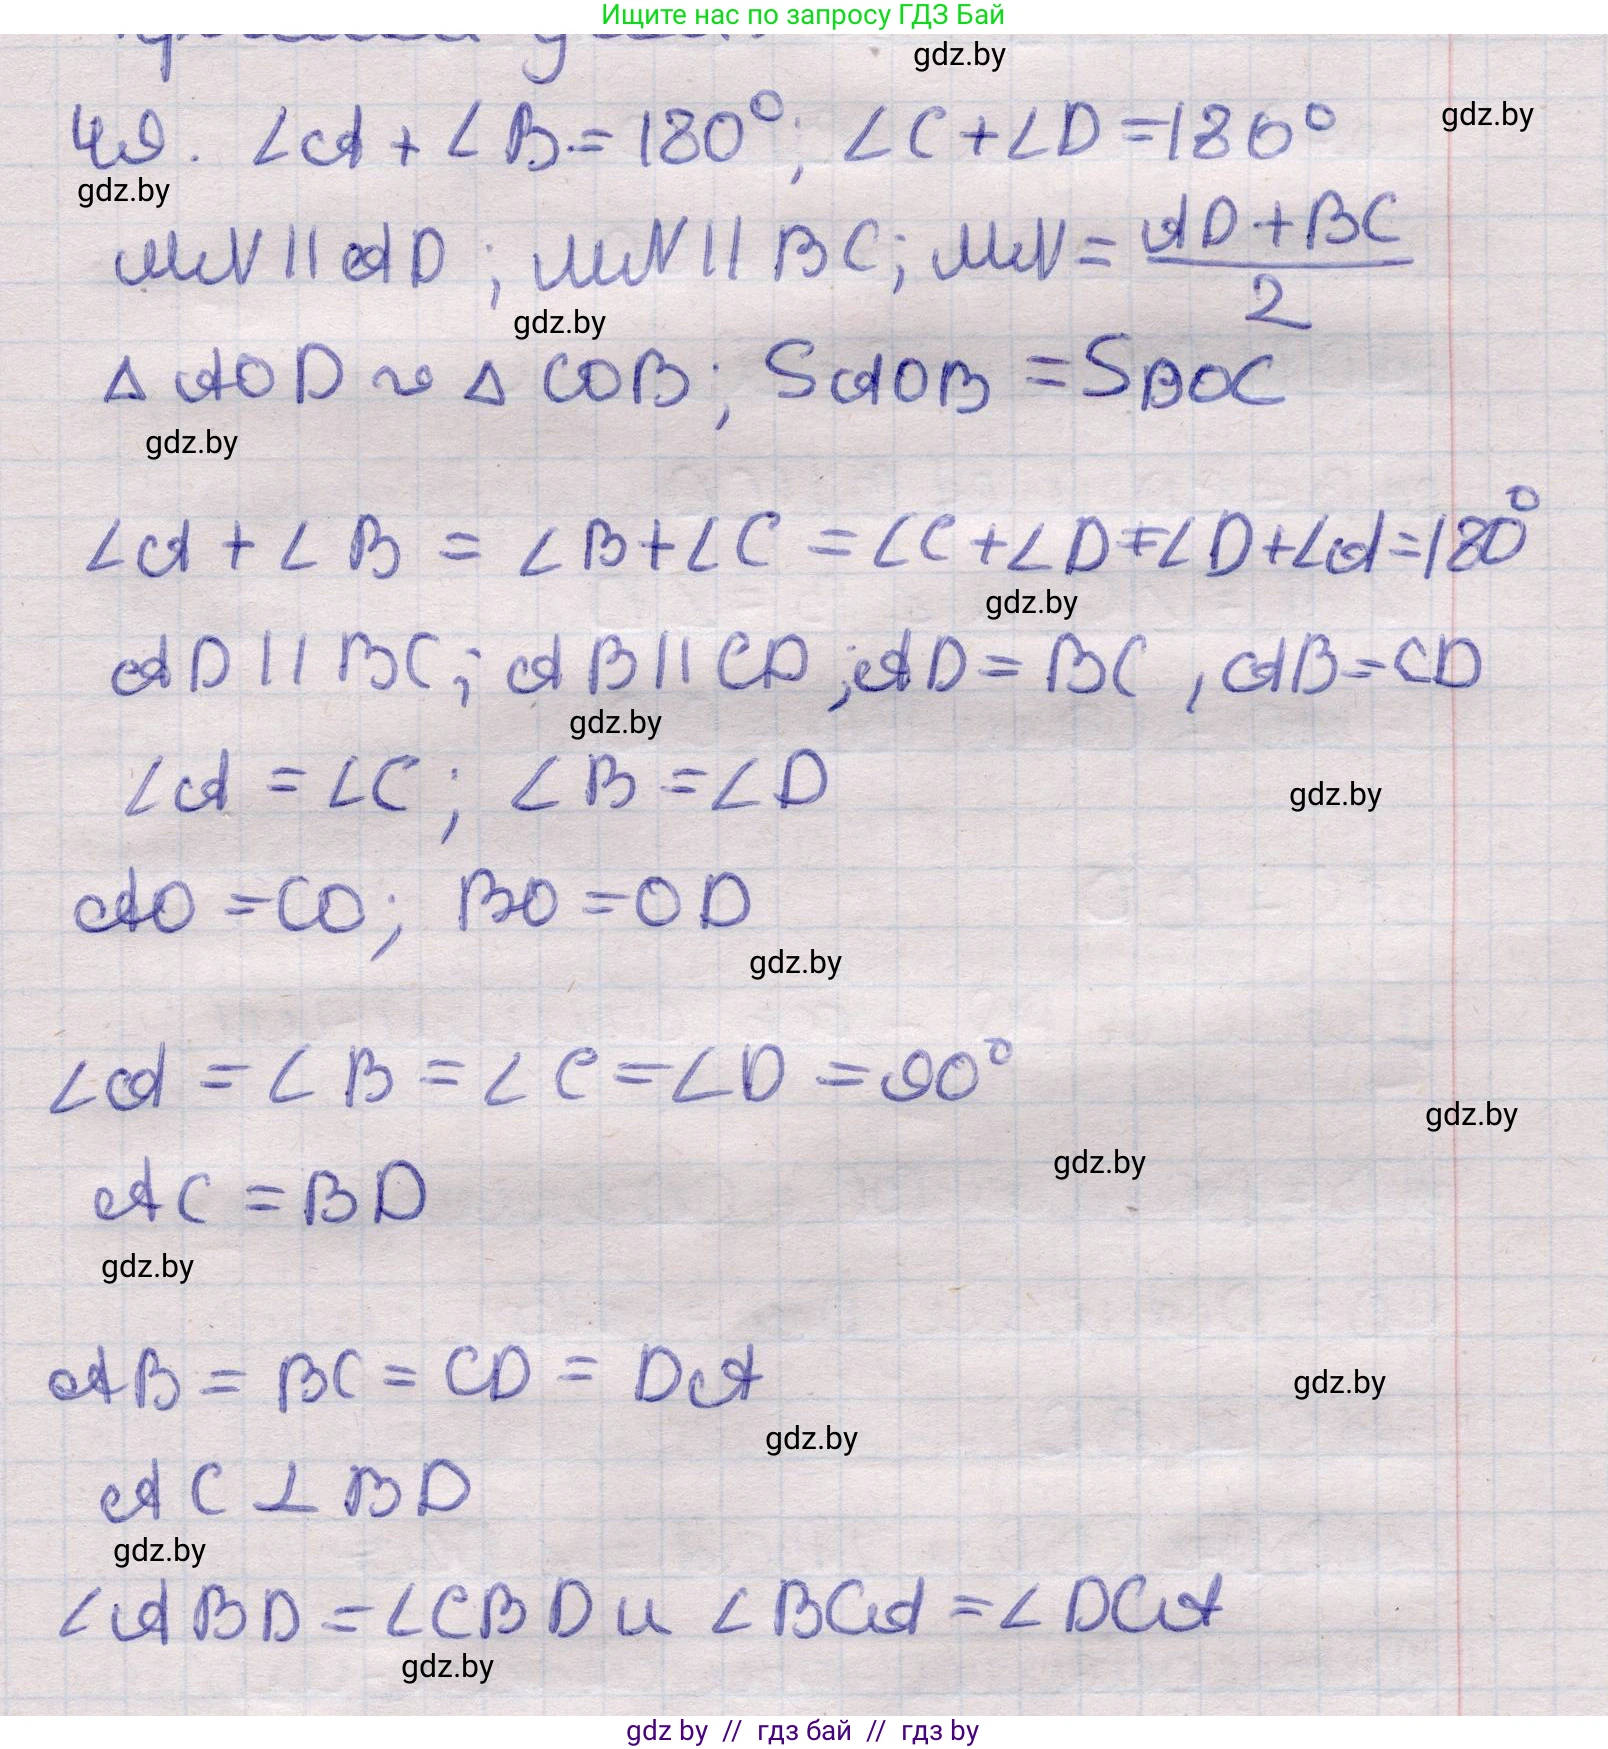 Ищите нас по запросу ГДЗ Бай
gdz.by
49. ∠A + ∠B = 180°; ∠C + ∠D = 180°
gdz.by
gdz.by
MN || AD ; MN || BC; MN = AD + BC / 2
gdz.by
Δ AOD ~ Δ COB; SAOB = SBOC
gdz.by
∠A + ∠B = ∠B + ∠C = ∠C + ∠D = ∠D + ∠A = 180°
gdz.by
AD || BC; AB || CD; AD = BC, AB = CD
gdz.by
∠A = ∠C; ∠B = ∠D
gdz.by
AO = CO; BO = OD
gdz.by
∠A = ∠B = ∠C = ∠D = 90°
gdz.by
gdz.by
AC = BD
gdz.by
AB = BC = CD = DA
gdz.by
gdz.by
AC ⊥ BD
gdz.by
∠ABD = ∠CBD и ∠BCA = ∠DCA
gdz.by
gdz by // гдз бай // гдз by